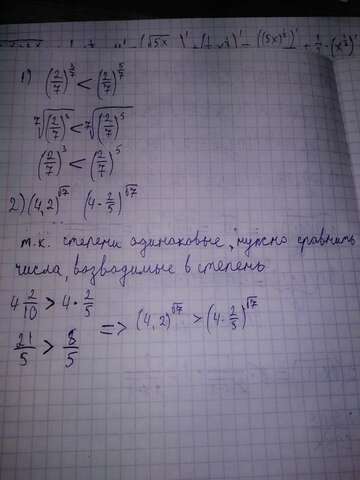 1) (2/7)^(3/7) < (2/7)^(5/7)
⁷√(2/7)³ < ⁷√(2/7)⁵
(2/7)³ < (2/7)⁵
2) (4,2)^√7 (4·2/5)^√7
т.к. степени одинаковые, нужно сравнить
числа, возводимые в степень
4 2/10 > 4·2/5
21/5 > 8/5 => (4,2)^√7 > (4·2/5)^√7